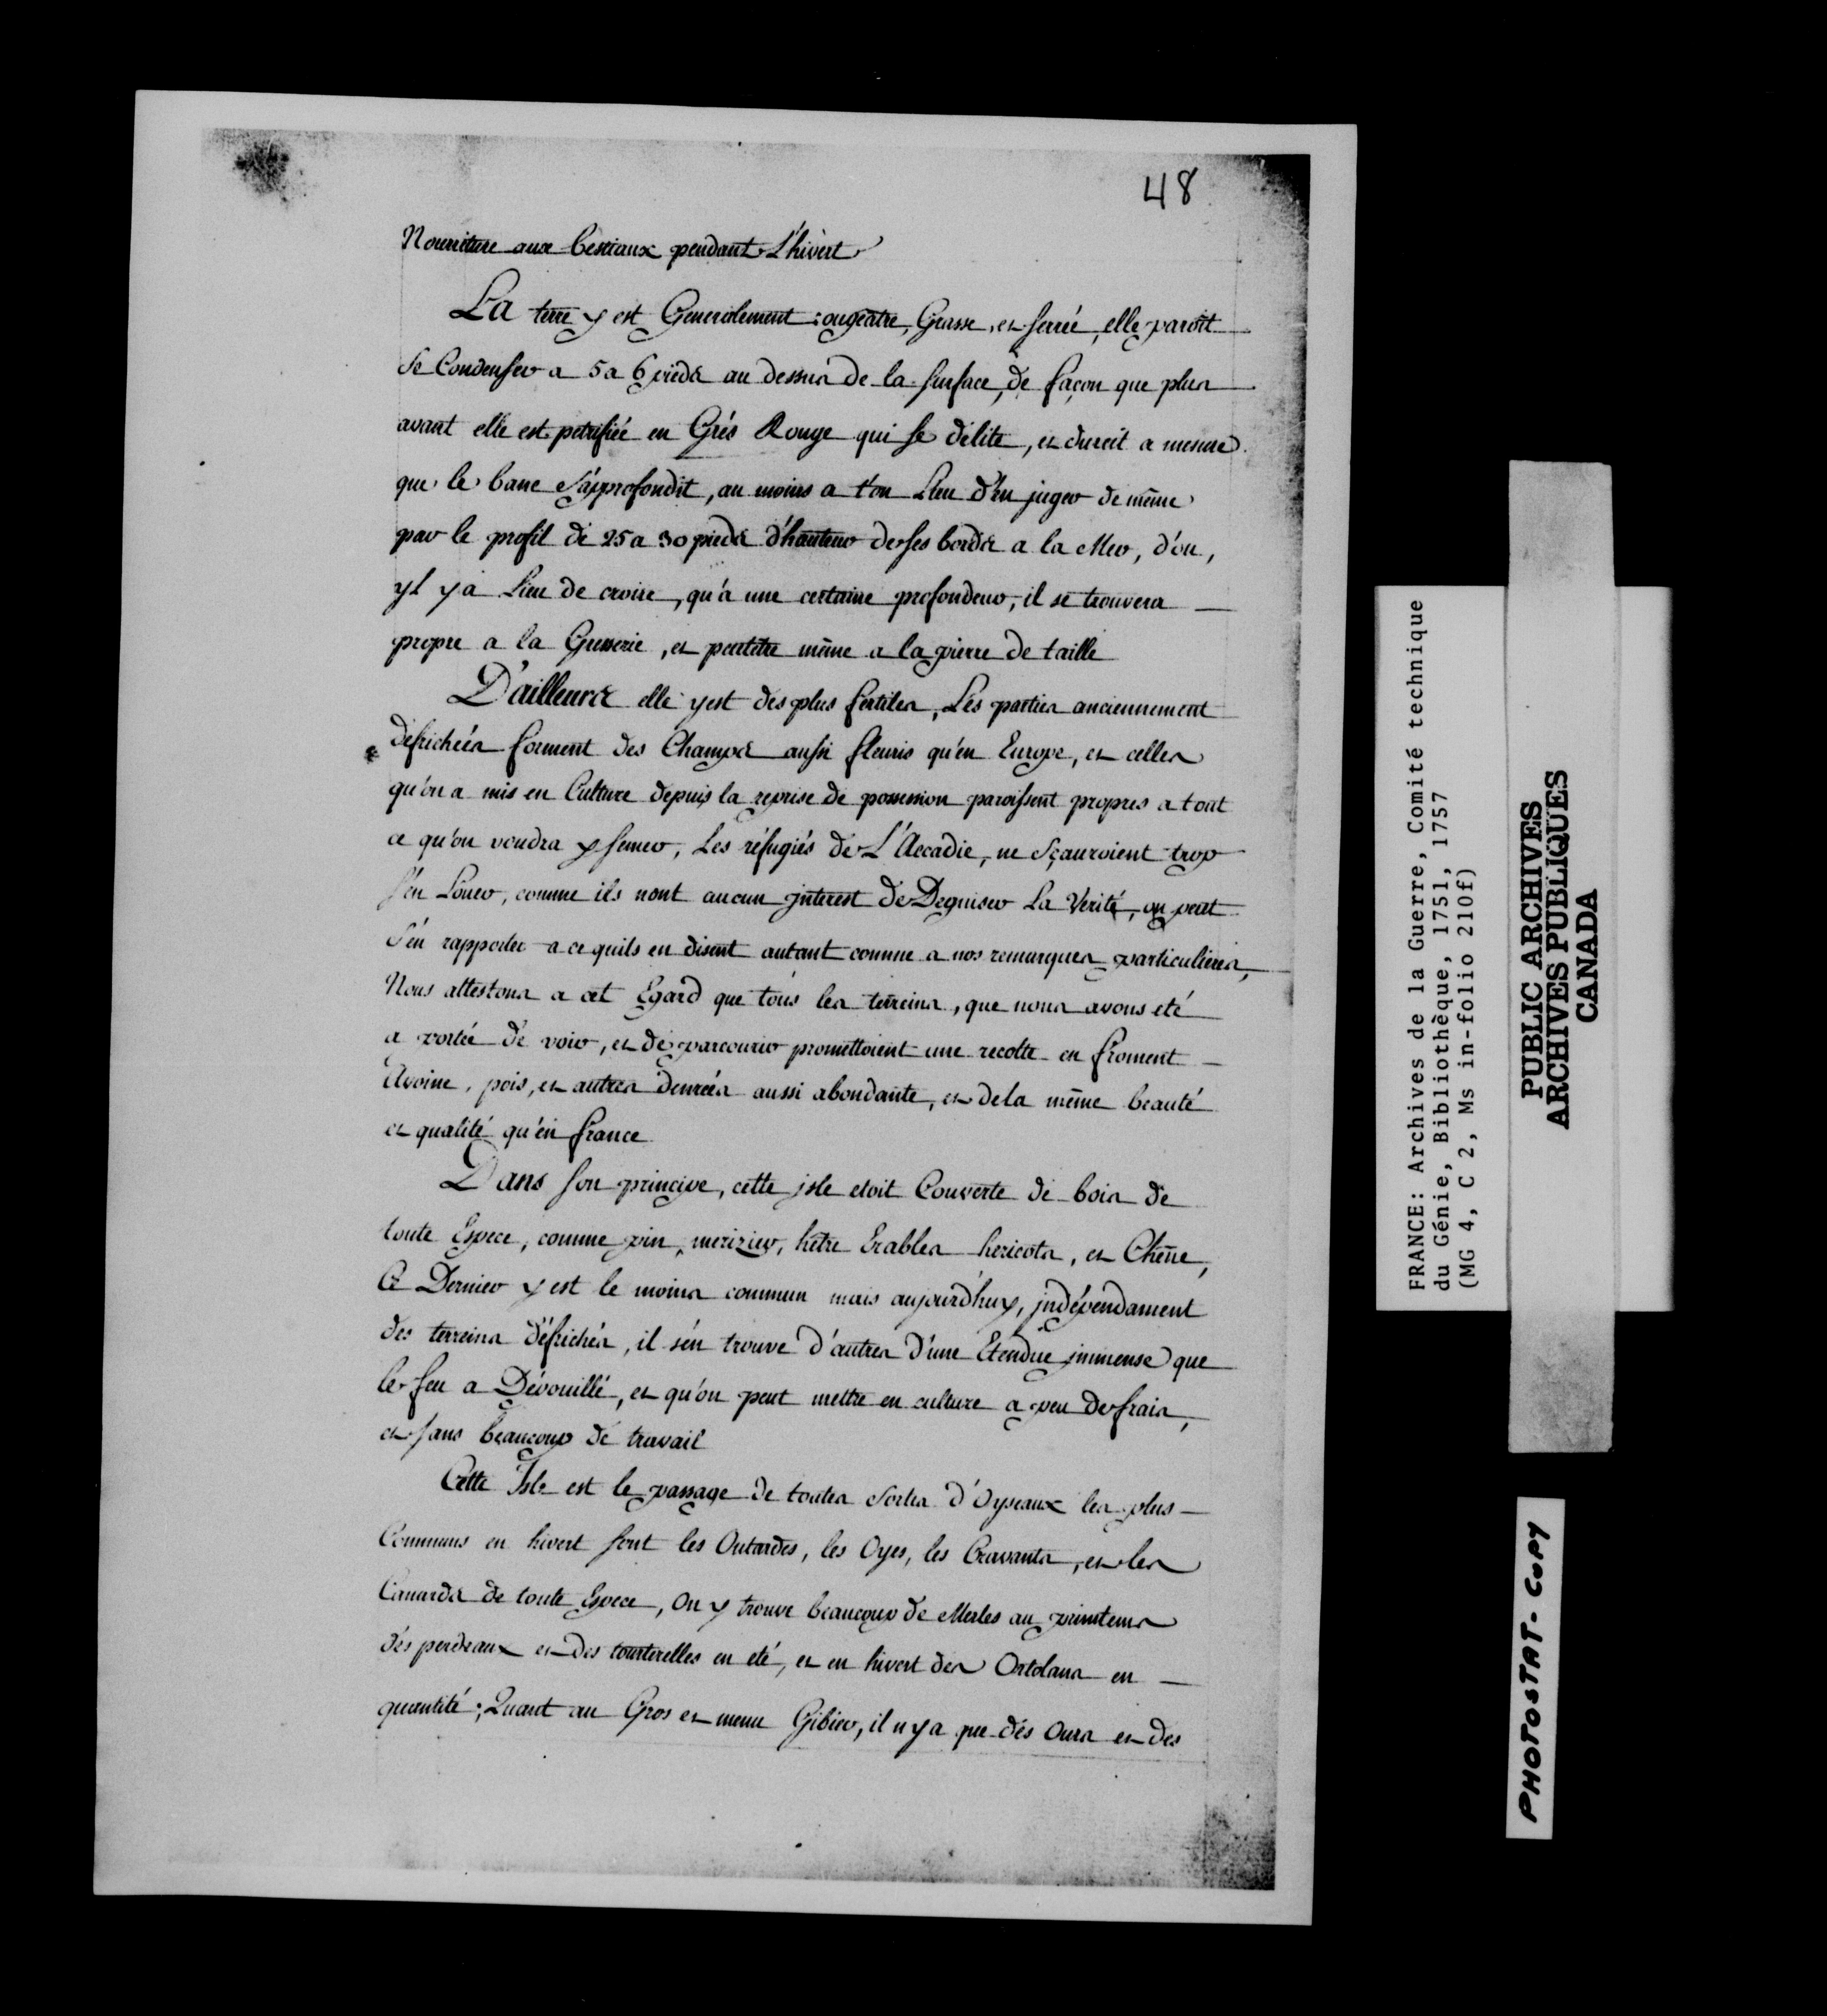 48
Nourriture aux bestiaux pendant L'hivert
La terre y est Generalement rougeatre, Grasse, et serrée, elle paroit
se Condenser a 5 a 6 pieds au dessus de la surface, de façon que plus
avant elle est petrifiée en Grés Rouge qui se délite, et durcit a mesure
que le banc s'approfondit, au moins a t'on Lieu d'en juger de même
par le profil de 25 a 30 pieds d'hauteur de ses bords a la Mer, d'ou,
yl y a Lieu de croire, qu'a une certaine profondeur, il se trouvera
propre a la Gresserie, et peutêtre même a la pierre de taille
D'ailleurs elle y est des plus fertiles, Les parties anciennement
défrichées forment des Champs aussi fleuris qu'en Europe, et celles
qu'on a mis en Culture depuis la reprise de possession paroissent propres a tout
ce qu'on voudra y semer, Les réfugiés de L'Accadie, ne sçauroient trop
s'en Louer, comme ils nont aucun jnterest de Deguiser La Verité, on peut
s'en rapporter a ce quils en disent autant comme a nos remarques particulieres,
Nous attestons a cet Egard que tous les terreins, que nous avons eté
a portée de voir, et de parcourir promettoient une recolte en froment
Avoine, pois, et autres denrées aussi abondante, et dela même beauté
et qualité qu'en france
Dans son principe, cette jsle etoit Couverte de bois de
toute Espece, comme pin, merizier, hêtre Erables hericots, et Chêne,
Ce Dernier y est le moins commun mais aujourd'huy, jndépendament
des terreins défrichés, il s'en trouve d'autres d'une Etendue jmmense que
le feu a Dépouillé, et qu'on peut mettre en culture a peu de frais,
et sans beaucoup de travail
Cette Isle est le passage de toutes sortes d'Oyseaux les plus
Communs en hivert sont les Outardes, les Oyes, les Cravants, et les
Canards de toute Espece, On y trouve beaucoup de Merles au printems
dés perdreaux et des tourterelles en eté, et en hivert des Ortolans en
quantité; Quant au Gros et menu Gibier, il n'y a que dés Ours et des
FRANCE: Archives de la Guerre, Comité technique
du Génie, Bibliothèque, 1751, 1757
(MG 4, C 2, Ms in-folio 210f)
PUBLIC ARCHIVES
ARCHIVES PUBLIQUES
CANADA
PHOTOSTAT-COPY